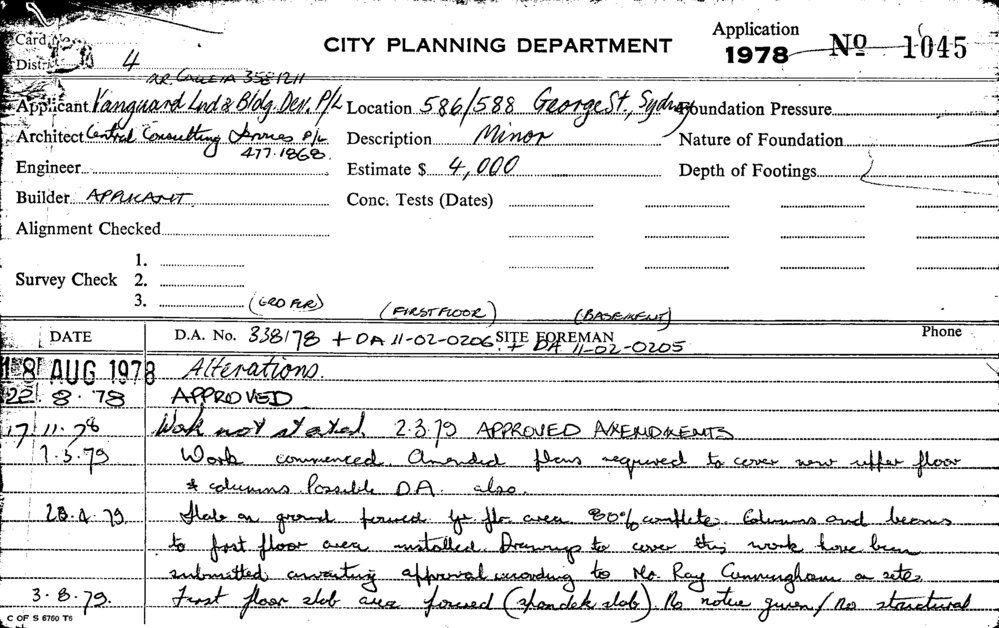 Card No.
CITY PLANNING DEPARTMENT
Application
1978 No 1045
District 4
358 1211
Applicant Vanguard Lnd & Bldg. Dev. P/L Location 586/588 George St., Sydney Foundation Pressure
Architect Central Consulting P/L Description Minor Nature of Foundation
477.1868
Engineer Estimate $ 4,000 Depth of Footings
Builder APPLICANT Conc. Tests (Dates)
Alignment Checked
1.
Survey Check 2.
3. (GRD FLR) (FIRST FLOOR) (BASEMENT)
DATE D.A. No. 338/78 + DA 11-02-0206 SITE FOREMAN + DA 11-02-0205 Phone
18 AUG 1978 Alterations.
22. 8. 78 APPROVED
17. 11. 78 Work not started. 2.3.79 APPROVED AMENDMENTS
7.3.79 Work commenced. Amended plans required to cover new upper floor
& columns. Possible D.A. also.
23.4.79. Slab on ground formed flr. area 80% complete. Columns and beams
to first floor area installed. Drawings to cover this work have been
submitted awaiting approval according to Mr. Ray Cunningham on site.
3.8.79. First floor slab area formed (spandek slab). No notice given / No structural
C OF S 6760 T6